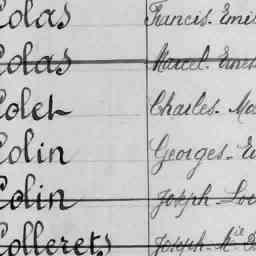 Colas Francis-Emi
Colas Marcel-Ernes
Colet Charles-Ma
Colin Georges-Eu
Colin Joseph-Lou
Collerets Joseph-Mie